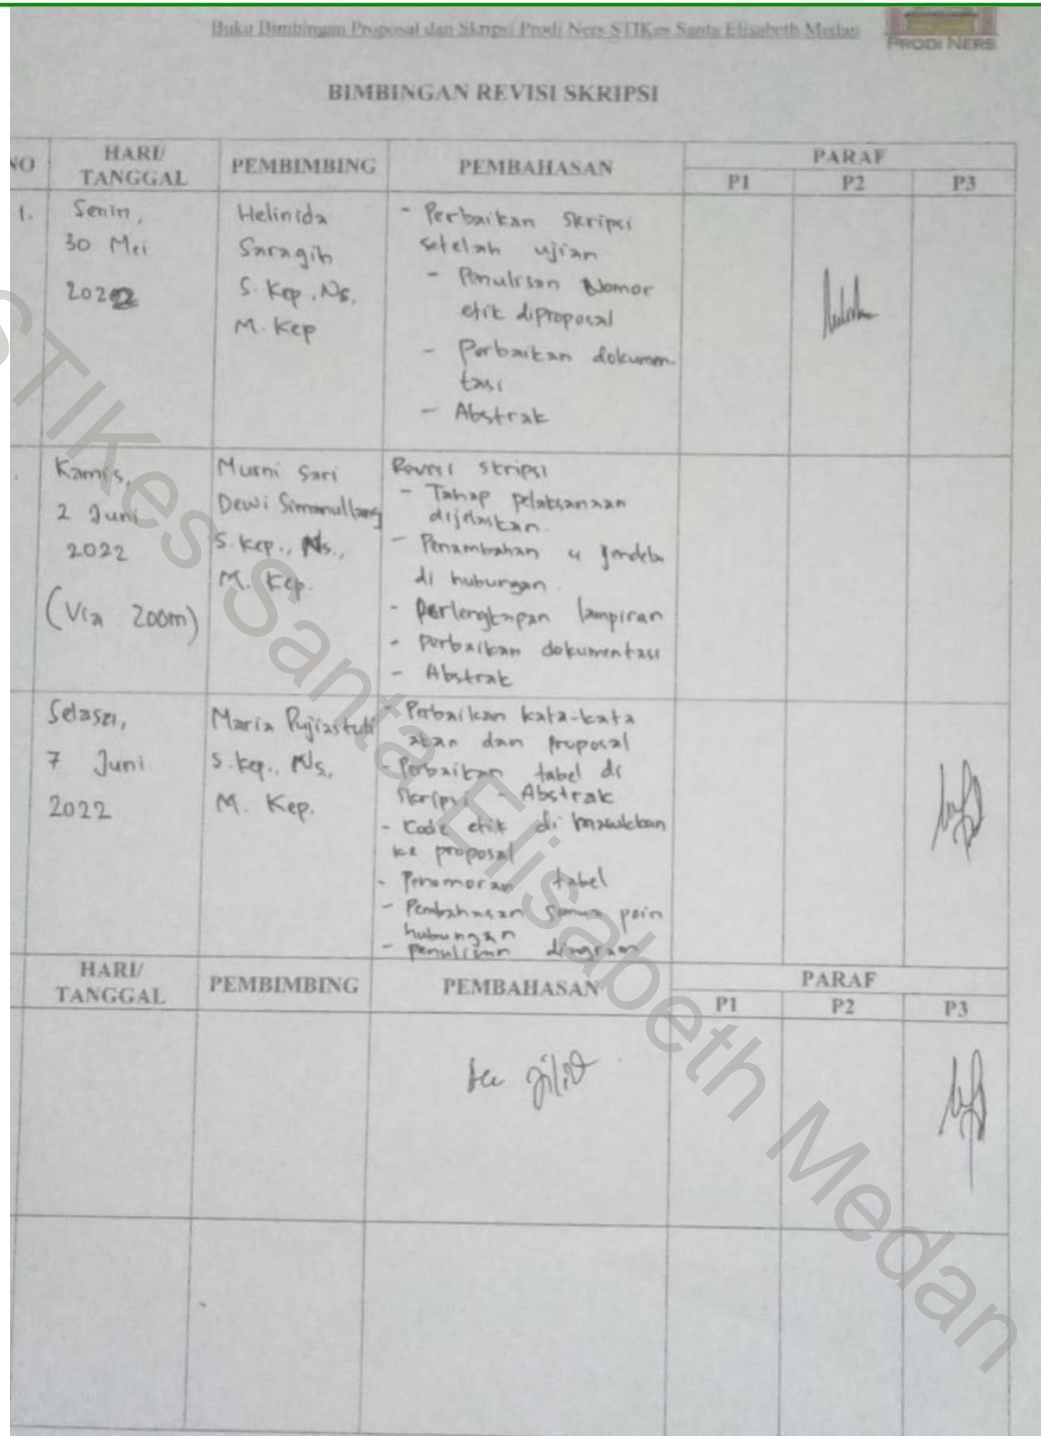 Buku Bimbingan Proposal dan Skripsi Prodi Ners STIKes Santa Elisabeth Medan
PRODI NERS
BIMBINGAN REVISI SKRIPSI
NO
HARI/
TANGGAL
PEMBIMBING
PEMBAHASAN
PARAF
P1
P2
P3
1.
Senin,
30 Mei
2022
Helinida
Saragih
S. Kep., Ns,
M. Kep
- Perbaikan Skripsi
setelah ujian
- Penulisan Nomor
etik diproposal
- Perbaikan dokumen-
tasi
- Abstrak
Kamis,
2 Juni
2022
(Via Zoom)
Murni Sari
Dewi Simanullang
S. Kep., Ns.,
M. Kep.
Revisi skripsi
- Tahap pelaksanaan
dijelaskan.
- Penambahan 4 jendela
di hubungan.
- Perlengkapan lampiran
- Perbaikan dokumentasi
- Abstrak
Selasa,
7 Juni
2022
Maria Pujiastuti
S. Kep., Ns,
M. Kep.
- Perbaikan kata-kata
akan dan proposal
- Perbaikan tabel di
skripsi - Abstrak
- Kode etik di masukkan
ke proposal
- Penomoran tabel
- Pembahasan semua poin
hubungan
- penulisan diagram
HARI/
TANGGAL
PEMBIMBING
PEMBAHASAN
PARAF
P1
P2
P3
jilid
STIKes Santa Elisabeth Medan